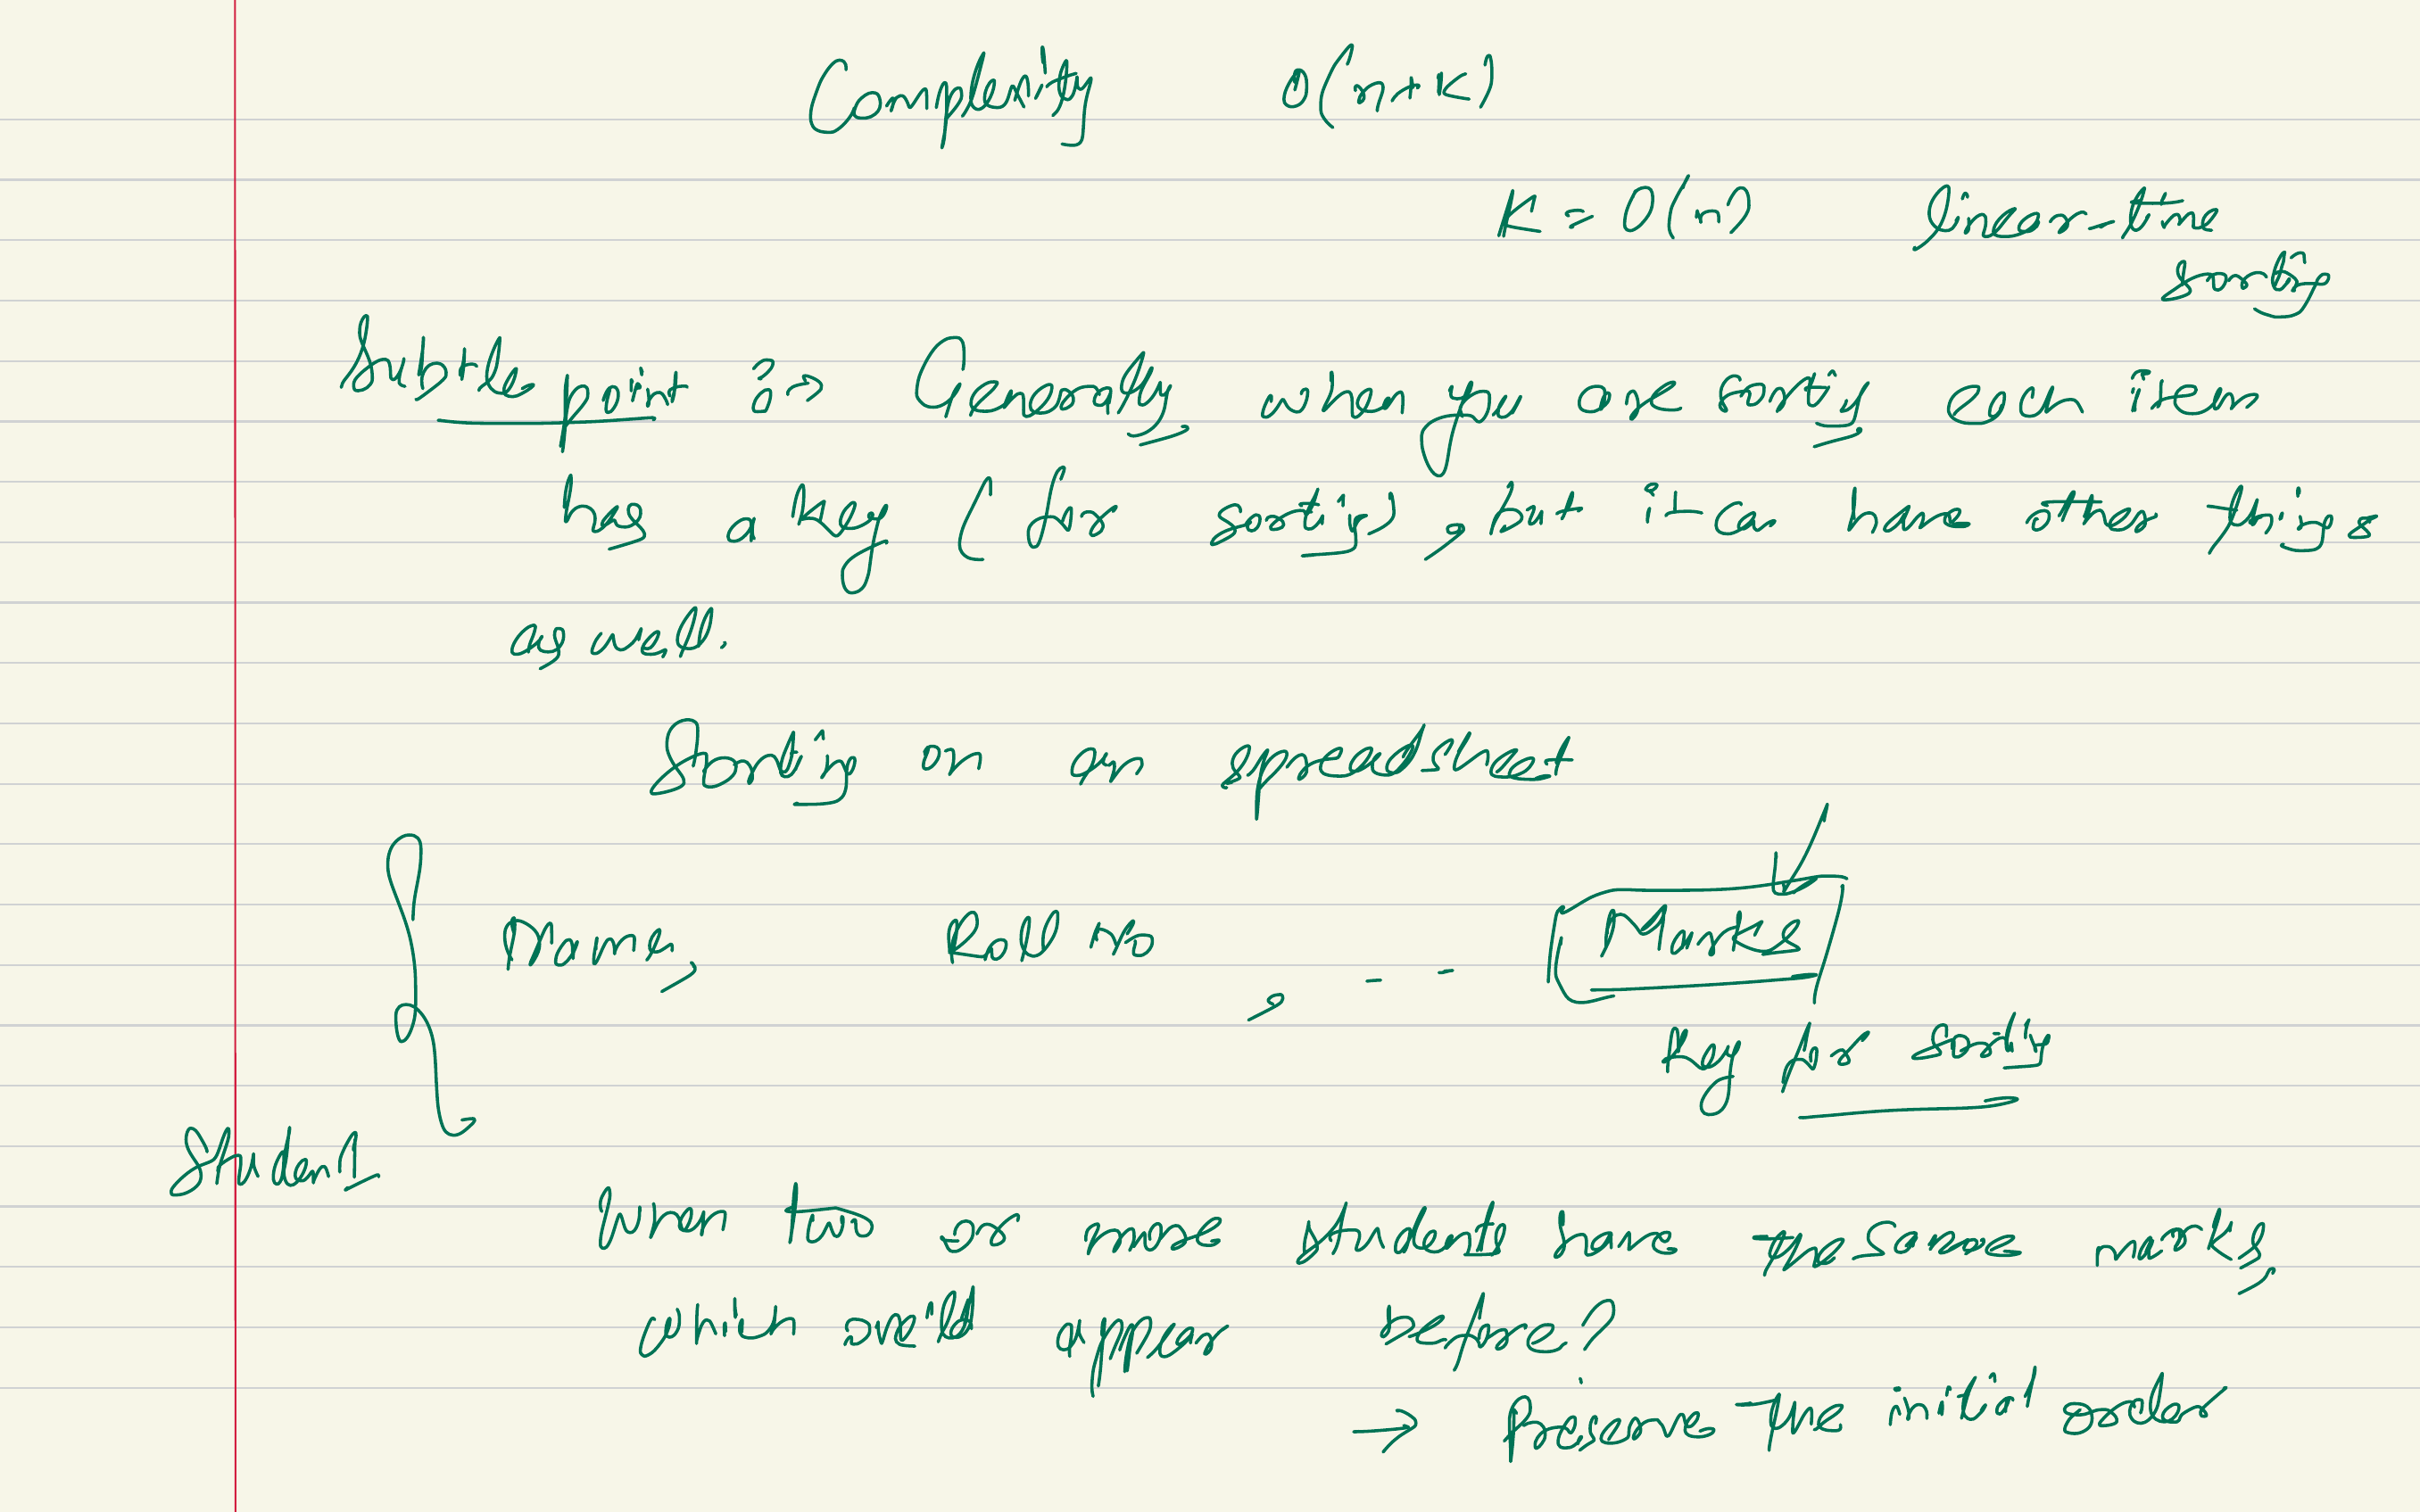 Complexity O(n+K)
K = O(n) linear-time
sorting
Subtle point :→ Generally, when you are sorting each item
has a key (for sorting), but it can have other things
as well.
Sorting on an spreadsheet
Name, Roll no, - - Marks
Key for sorting
Student
When two or more students have the same marks,
which will appear before?
→ Preserve the initial order